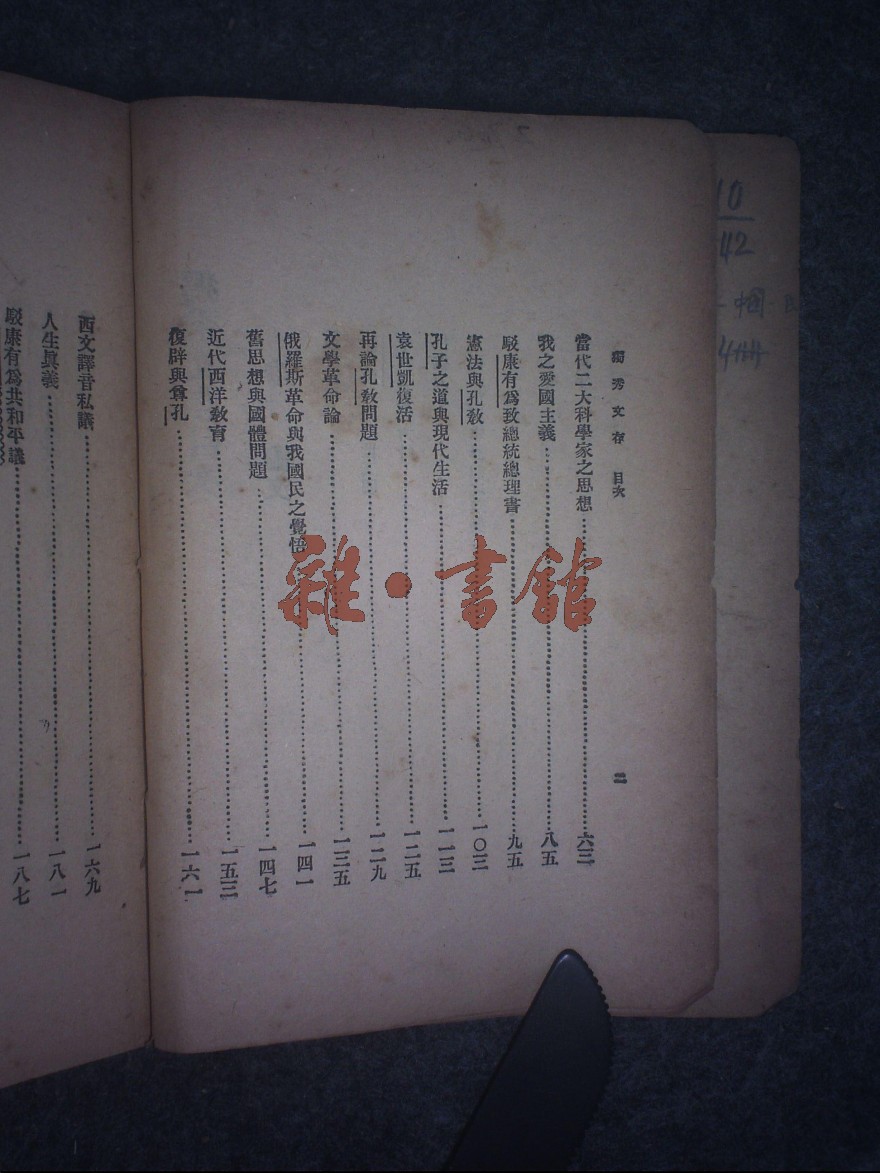 獨秀文存 目次
二
當代二大科學家之思想……六三
我之愛國主義……八五
駁康有爲致總統總理書……九五
憲法與孔敎……一〇三
孔子之道與現代生活……一一三
袁世凱復活……一二五
再論孔敎問題……一二九
文學革命論……一三五
俄羅斯革命與我國民之覺悟……一四一
舊思想與國體問題……一四七
近代西洋敎育……一五三
復辟與尊孔……一六一
西文譯音私議……一六九
人生眞義……一八一
駁康有爲共和平議……一八七
雜·書館
10
42
中國